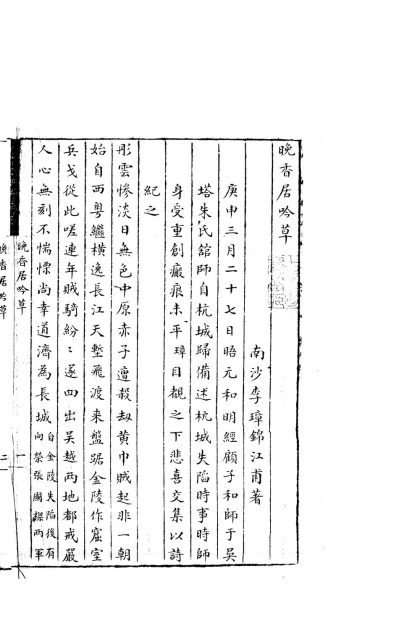 晚香居吟草
南沙李璋錦江甫著
庚申三月二十七日晤元和明經顧子和師于吳
塔朱氏館師自杭城歸備述杭城失陷時事時師
身受重創瘢痕未平璋目覩之下悲喜交集以詩
紀之
彤雲慘淡日無色中原赤子遭殺劫黄巾賊起非一朝
始自西粵繼橫逸長江天塹飛渡来盤踞金陵作窟室
兵戈從此嗟連年賊騎紛〻逐四出吳越兩地都戒嚴
人心無刻不惴慄尚幸道濟為長城自金陵失陷後有
向榮張國樑兩軍
晚香居吟草
一
晚香居吟草
二